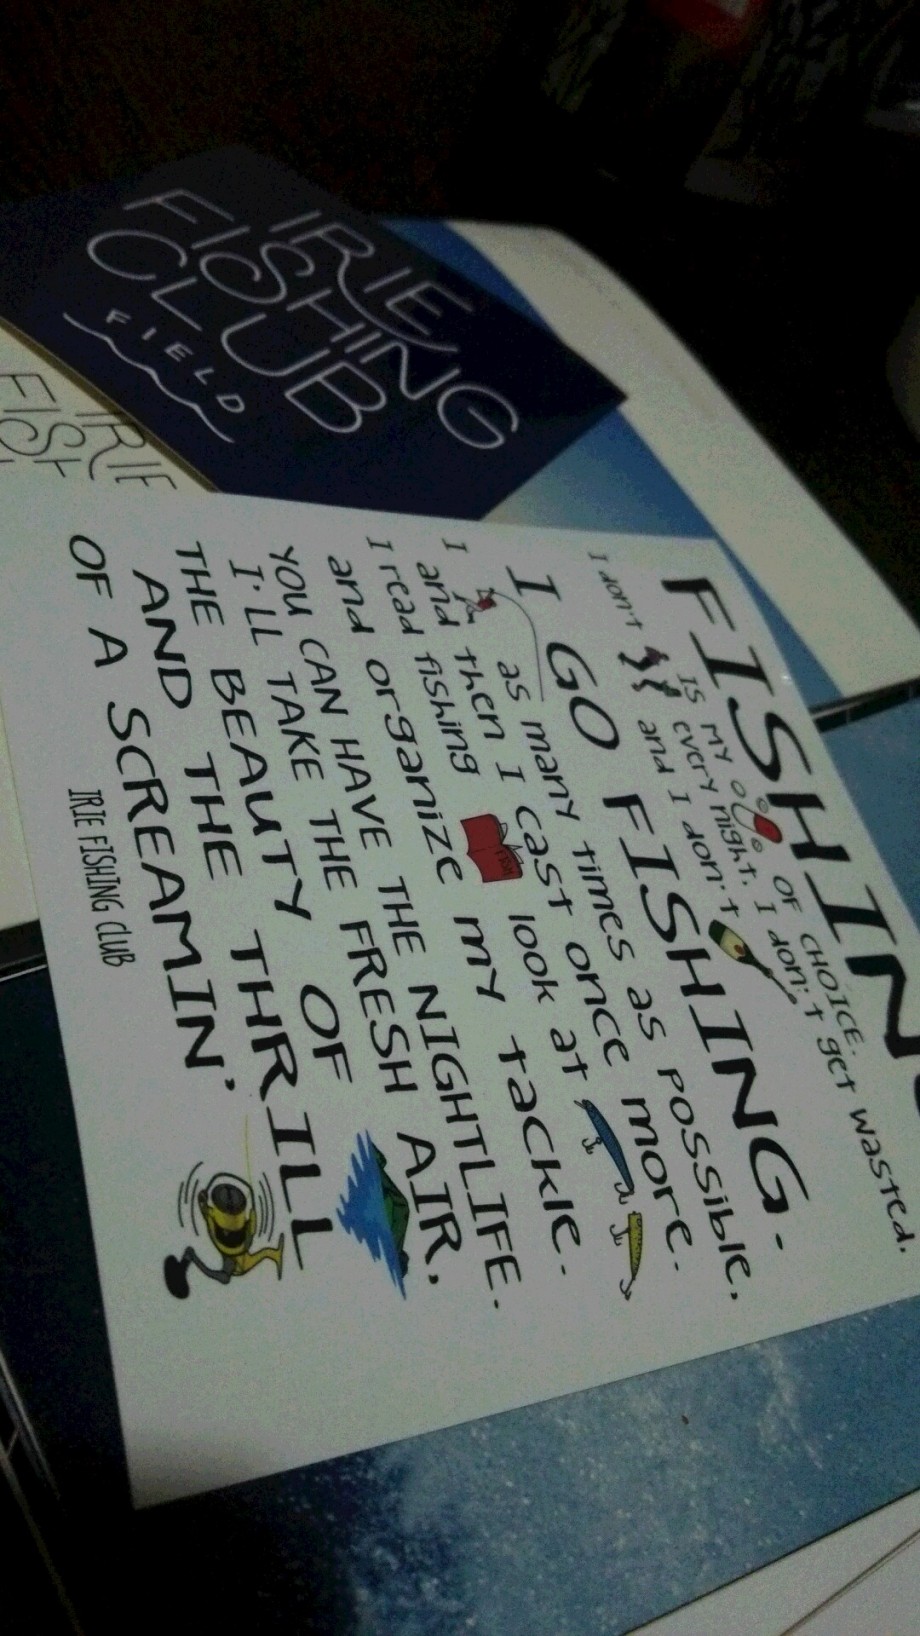 IRIE
FISHING
CLUB
FIELD
IRIE
FISH
FISHIN
IS MY OF CHOICE.
every night. I don't get wasted,
I don't and I don't
I GO FISHING.
I as many times as possible,
and then I cast once more.
I read fishing look at
and organize my tackle.
YOU CAN HAVE THE NIGHTLIFE.
I'LL TAKE THE FRESH AIR,
THE BEAUTY OF
AND THE THRILL
OF A SCREAMIN'
IRIE FISHING CLUB